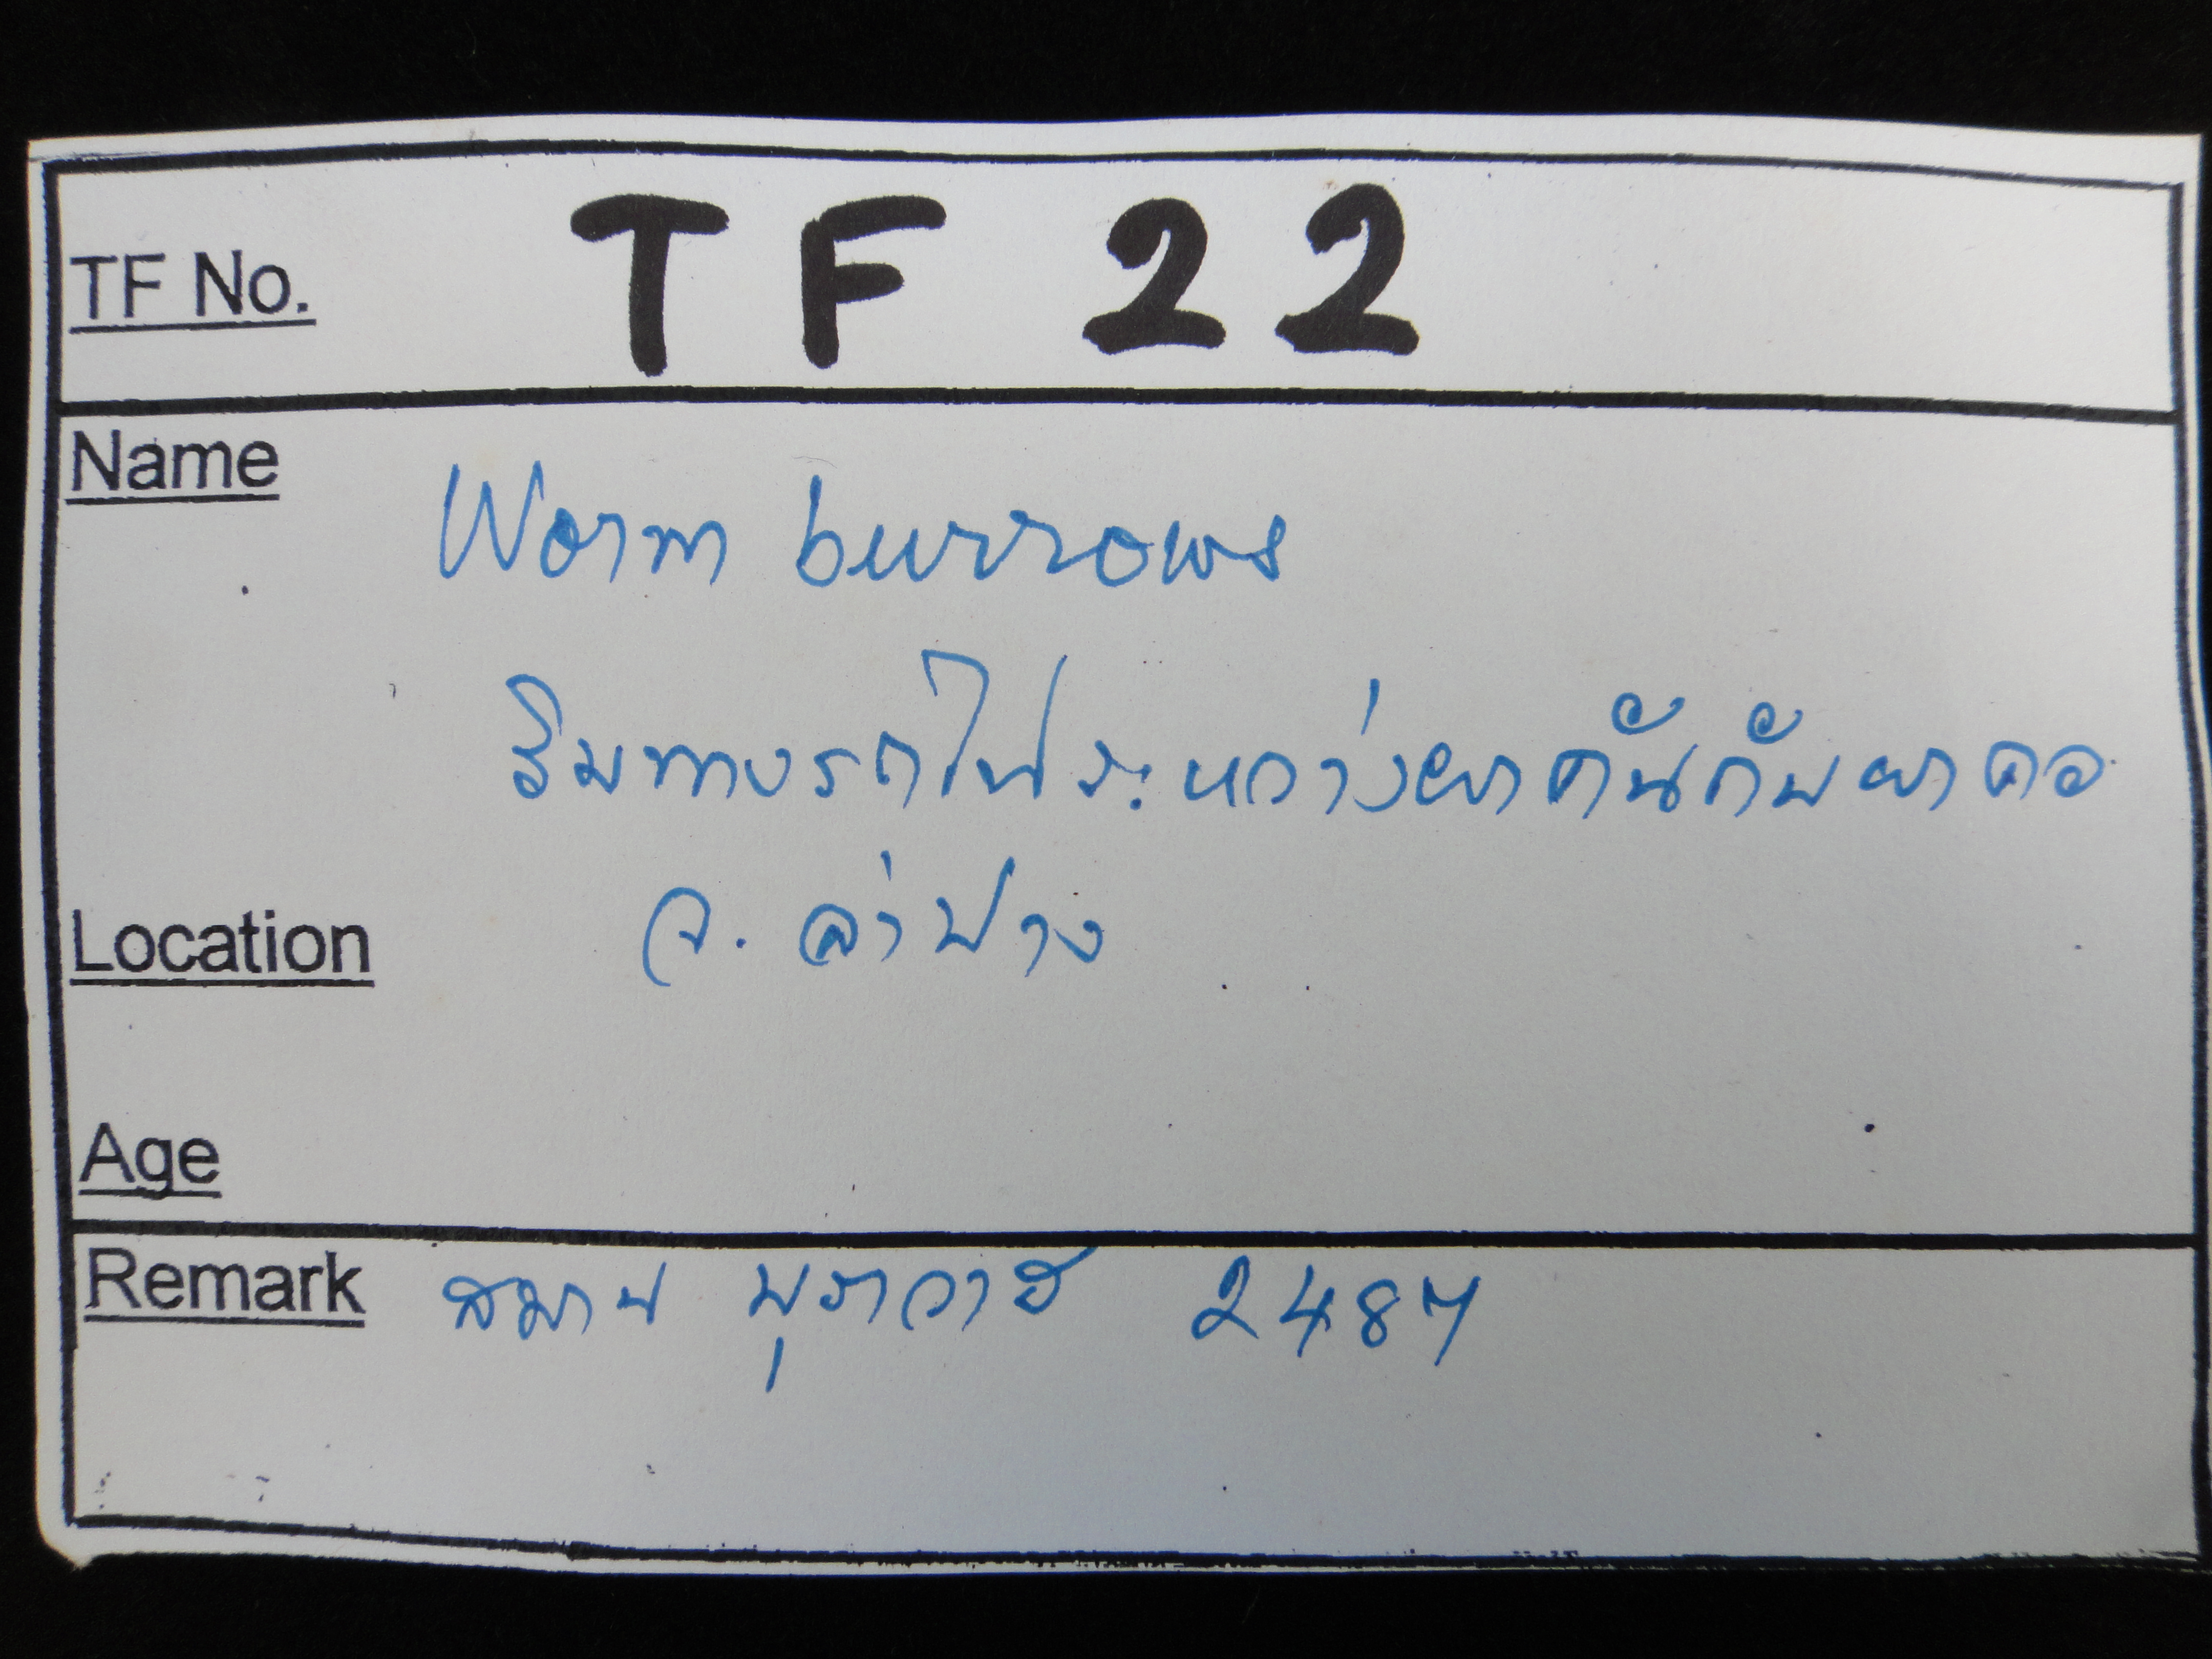 TF No. TF 22
Name
Worm burrows
ริมทางรถไฟระหว่างผาคันกับผาคอ
จ. ลำปาง
Location
Age
Remark สมาน บุราวาส 2487